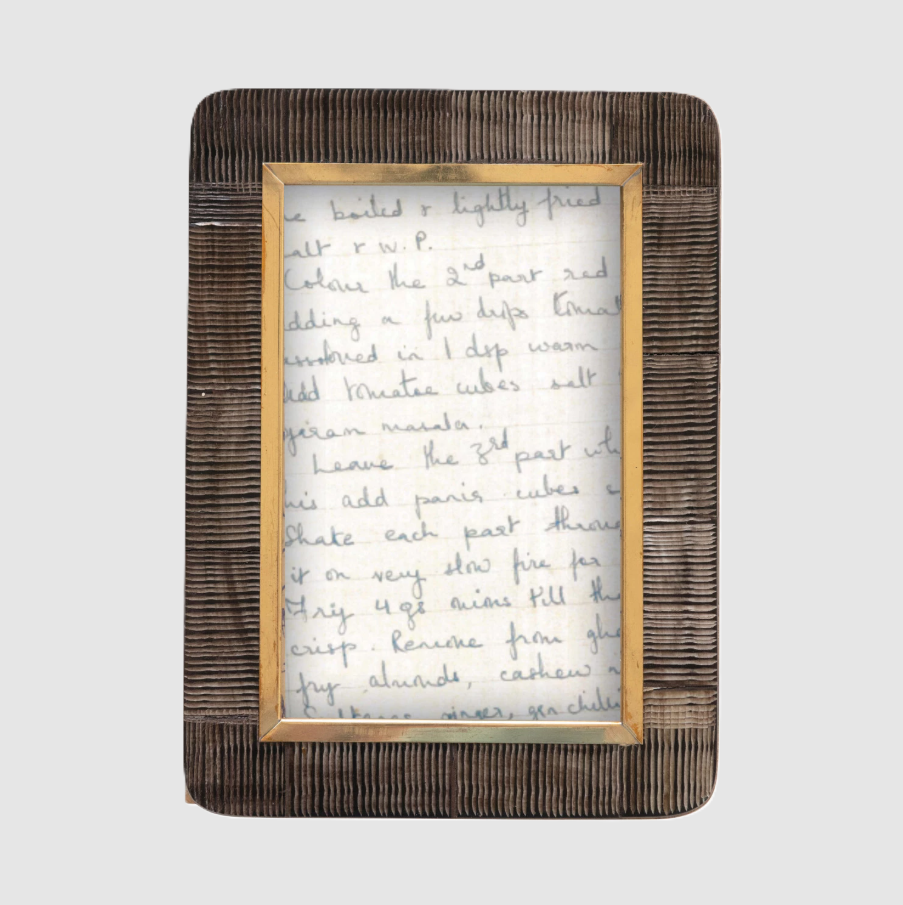 boiled & lightly fried
alt & w. P.
Colour the 2nd part red
dding a few dips tomat
in 1 dsp warm
Add tomatoe cubes salt
garam masala.
Leave the 3rd part whi
his add panir cubes s
Shake each part throug
it on very slow fire for
Fry 4 gs onions till the
crisp. Remove from ghe
fry almonds, cashew n
ginger, grn chilli